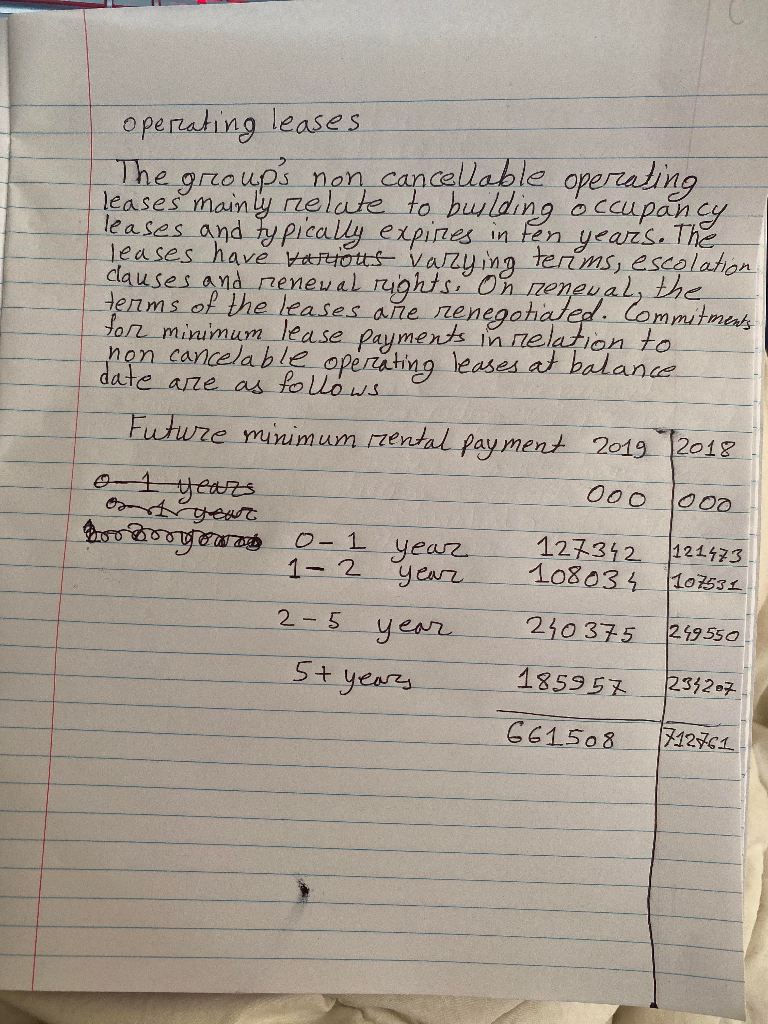 operating leases
The group's non cancellable operating
leases mainly relate to building occupancy
leases and typically expires in ten years. The
leases have various varying terms, escolation
clauses and renewal rights. On renewal, the
terms of the leases are renegotiated. Commitments
for minimum lease payments in relation to
non cancelable operating leases at balance
date are as follows
Future minimum rental payment 2019 2018
0-1 years 000 000
0-1 year
0-1 year 127342 121473
1-2 year 108034 107531
2-5 year 240375 249550
5+ years 185957 234207
661508 712761